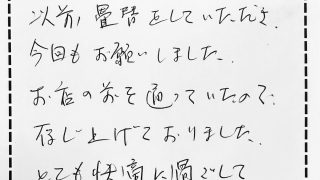 以前、畳替をしていただき、
今回もお願いしました。
お店の前を通っていたので
存じ上げておりました。
とても快適に過ごして